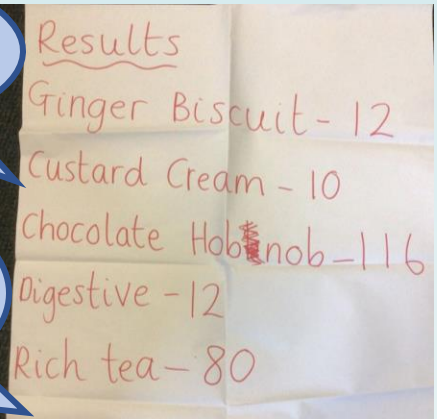 Results
Ginger Biscuit - 12
Custard Cream - 10
Chocolate Hobnob - 116
Digestive - 12
Rich tea - 80